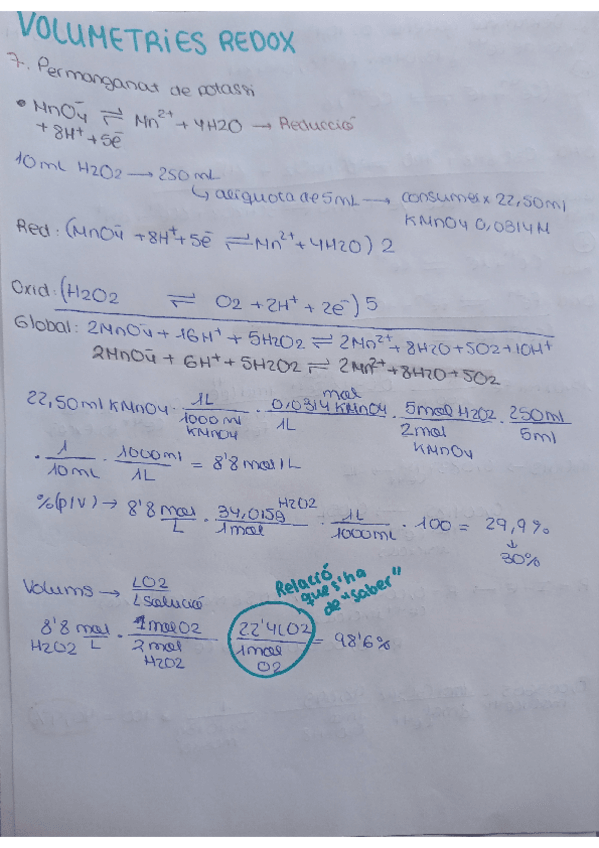 VOLUMETRIES REDOX
7. Permanganat de potassi
• MnO4⁻ ⇌ Mn²⁺ + 4H2O → Reducció
+ 8H⁺ + 5e⁻
10mL H2O2 → 250mL
↳ alíquota de 5mL → consumeix 22,50ml
KMnO4 0,0314M
Red: (MnO4⁻ + 8H⁺ + 5e⁻ ⇌ Mn²⁺ + 4H2O) 2
Oxid: (H2O2 ⇌ O2 + 2H⁺ + 2e⁻) 5
Global: 2MnO4⁻ + 16H⁺ + 5H2O2 ⇌ 2Mn²⁺ + 8H2O + 5O2 + 10H⁺
2MnO4⁻ + 6H⁺ + 5H2O2 ⇌ 2Mn²⁺ + 8H2O + 5O2
22,50ml KMnO4 · 1L / 1000ml KMnO4 · 0,0314 mol KMnO4 / 1L · 5mol H2O2 / 2mol KMnO4 · 250ml / 5ml
· 1 / 10mL · 1000ml / 1L = 8'8 mol/L
%(p/V) → 8'8 mol / L · 34,015g H2O2 / 1mol · 1L / 1000mL · 100 = 29,9%
↓
30%
Volums → LO2 / L solució
Relació
que s'ha
de "saber"
8'8 mol H2O2 / L · 1mol O2 / 2mol H2O2 · 22'4LO2 / 1mol O2 = 98'6%